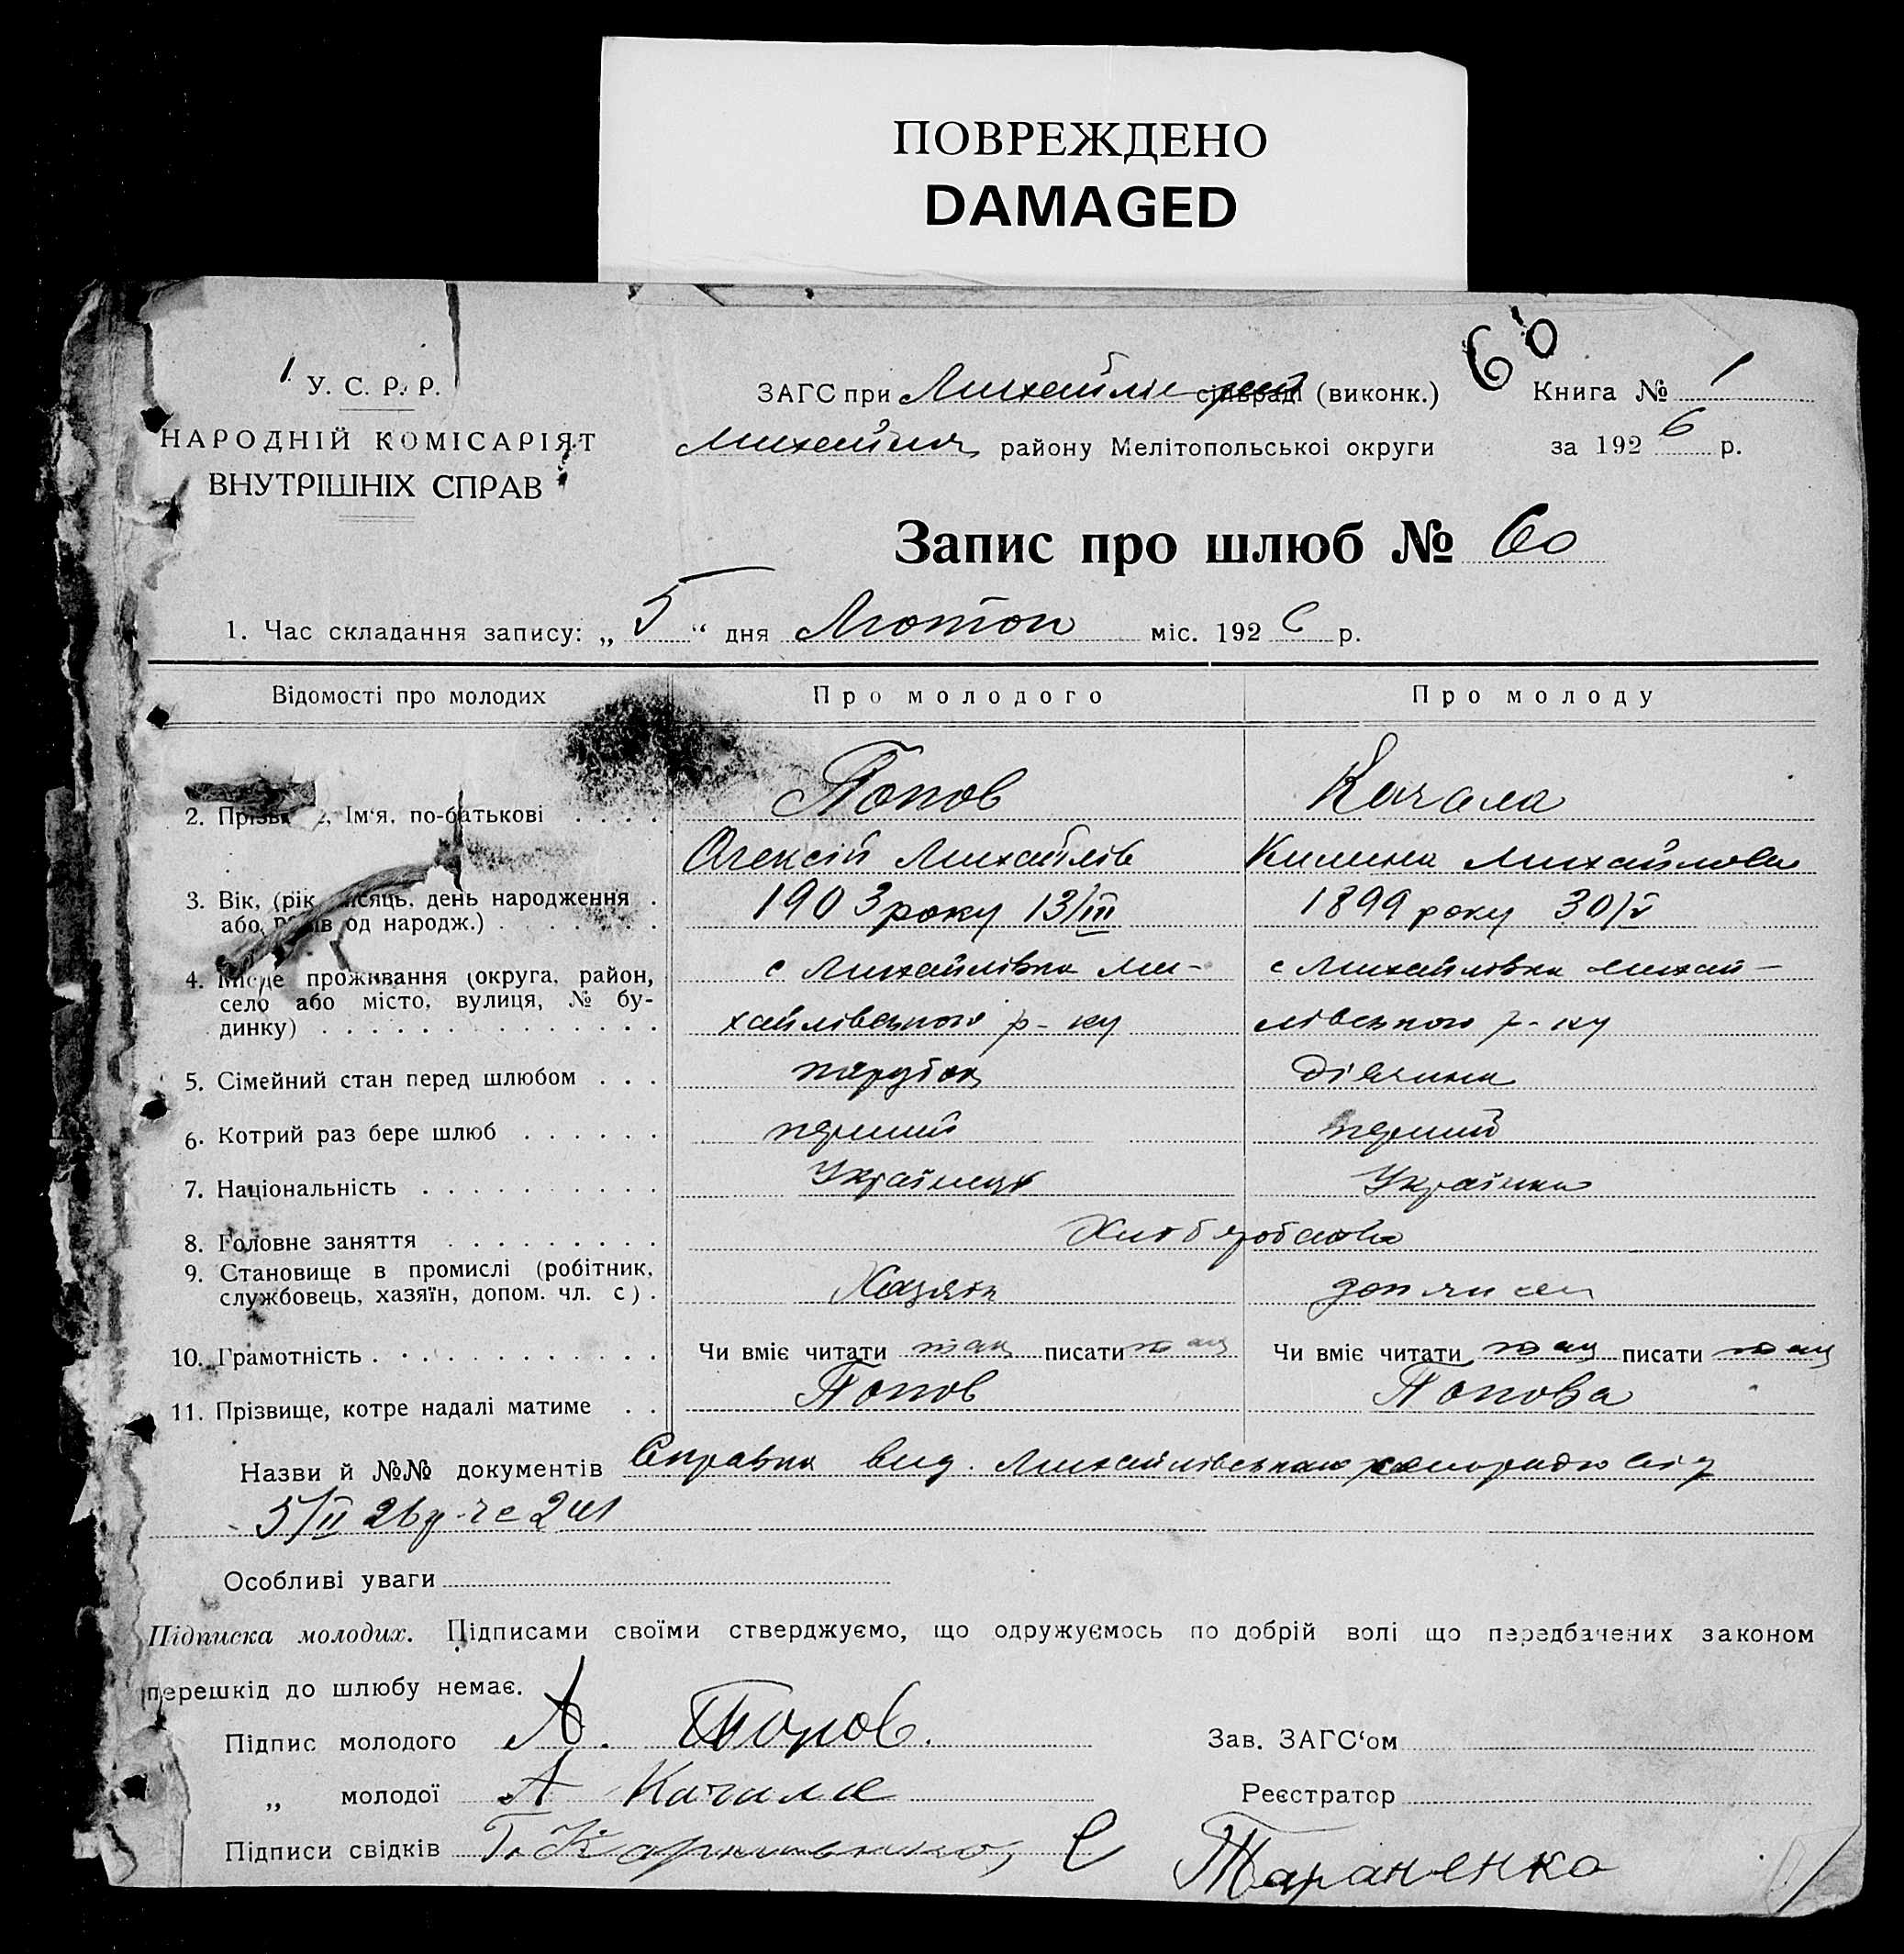 ПОВРЕЖДЕНО
DAMAGED
60
У. С. Р. Р.
НАРОДНІЙ КОМІСАРІЯТ
ВНУТРІШНІХ СПРАВ
ЗАГС при Михайлів сільраді (виконк.) Книга № 1
Михайлів району Мелітопольської округи за 1926 р.
Запис про шлюб № 60
1. Час складання запису: „5“ дня Лютого міс. 1926 р.
Відомості про молодих Про молодого Про молоду
2. Прізвище, Ім'я, по-батькові . . . . Попов Качала
Олексій Михайлів Килина Михайлова
3. Вік, (рік, місяць, день народження . 1903 року 13/III 1899 року 30/V
або років од народж.) . . . . . . .
4. Місце проживання (округа, район, с Михайлівка Ми- с Михайлівка Михай-
село або місто, вулиця, № бу-
динку) . . . . . . . . . . . . . . хайлівського р-ку лівського р-ку
5. Сімейний стан перед шлюбом . . . парубок дівчина
6. Котрий раз бере шлюб . . . . . . перший перший
7. Національність . . . . . . . . . . Українець Українка
8. Головне заняття . . . . . . . . . Хліборобство
9. Становище в промислі (робітник,
службовець, хазяїн, допом. чл. с) . Хазяїн доп чл сем
10. Грамотність . . . . . . . . . . . . Чи вміє читати так писати так Чи вміє читати так писати так
11. Прізвище, котре надалі матиме . . Попов Попова
Назви й №№ документів Справка вид. Михайлівською від
5/II 26р. №
Особливі уваги
Підписка молодих. Підписами своїми стверджуємо, що одружуємось по добрій волі що передбачених законом
перешкід до шлюбу немає.
Підпис молодого А. Попов. Зав. ЗАГС'ом
„ молодої А Качала Реєстратор
Підписи свідків Г. Тараненко